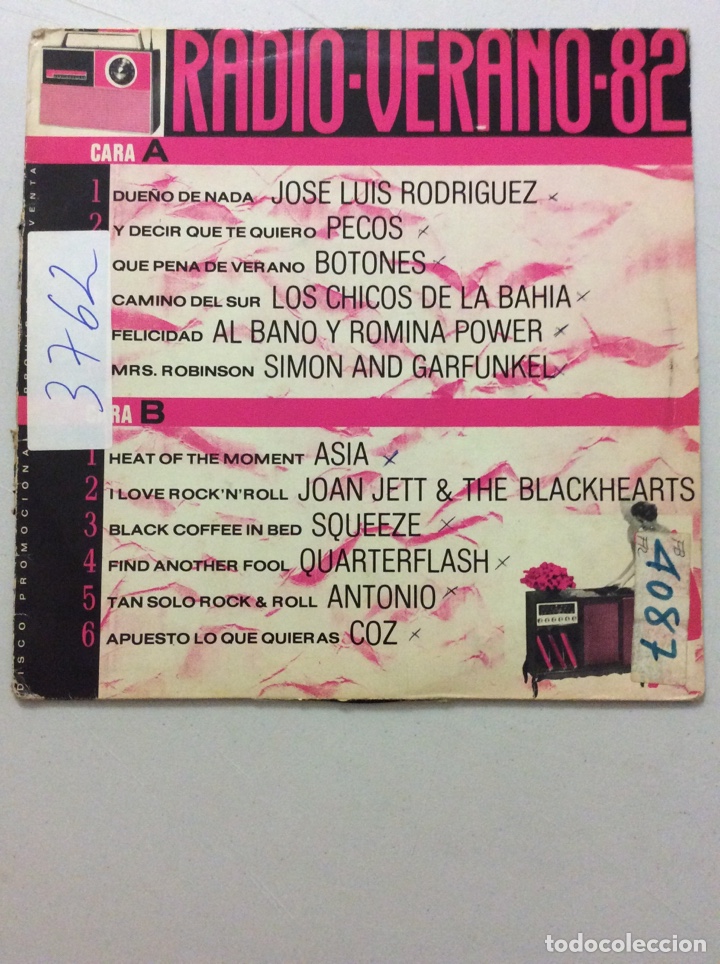 RADIO-VERANO-82
CARA A
1 DUEÑO DE NADA JOSE LUIS RODRIGUEZ x
2 Y DECIR QUE TE QUIERO PECOS x
QUE PENA DE VERANO BOTONES x
CAMINO DEL SUR LOS CHICOS DE LA BAHIA x
FELICIDAD AL BANO Y ROMINA POWER x
MRS. ROBINSON SIMON AND GARFUNKEL x
3762
RA B
1 HEAT OF THE MOMENT ASIA x
2 I LOVE ROCK'N'ROLL JOAN JETT & THE BLACKHEARTS
3 BLACK COFFEE IN BED SQUEEZE x
4 FIND ANOTHER FOOL QUARTERFLASH x
5 TAN SOLO ROCK & ROLL ANTONIO x
6 APUESTO LO QUE QUIERAS COZ x
DISCO PROMOCIONAL VENTA
4087
todocoleccion
todocoleccion.net